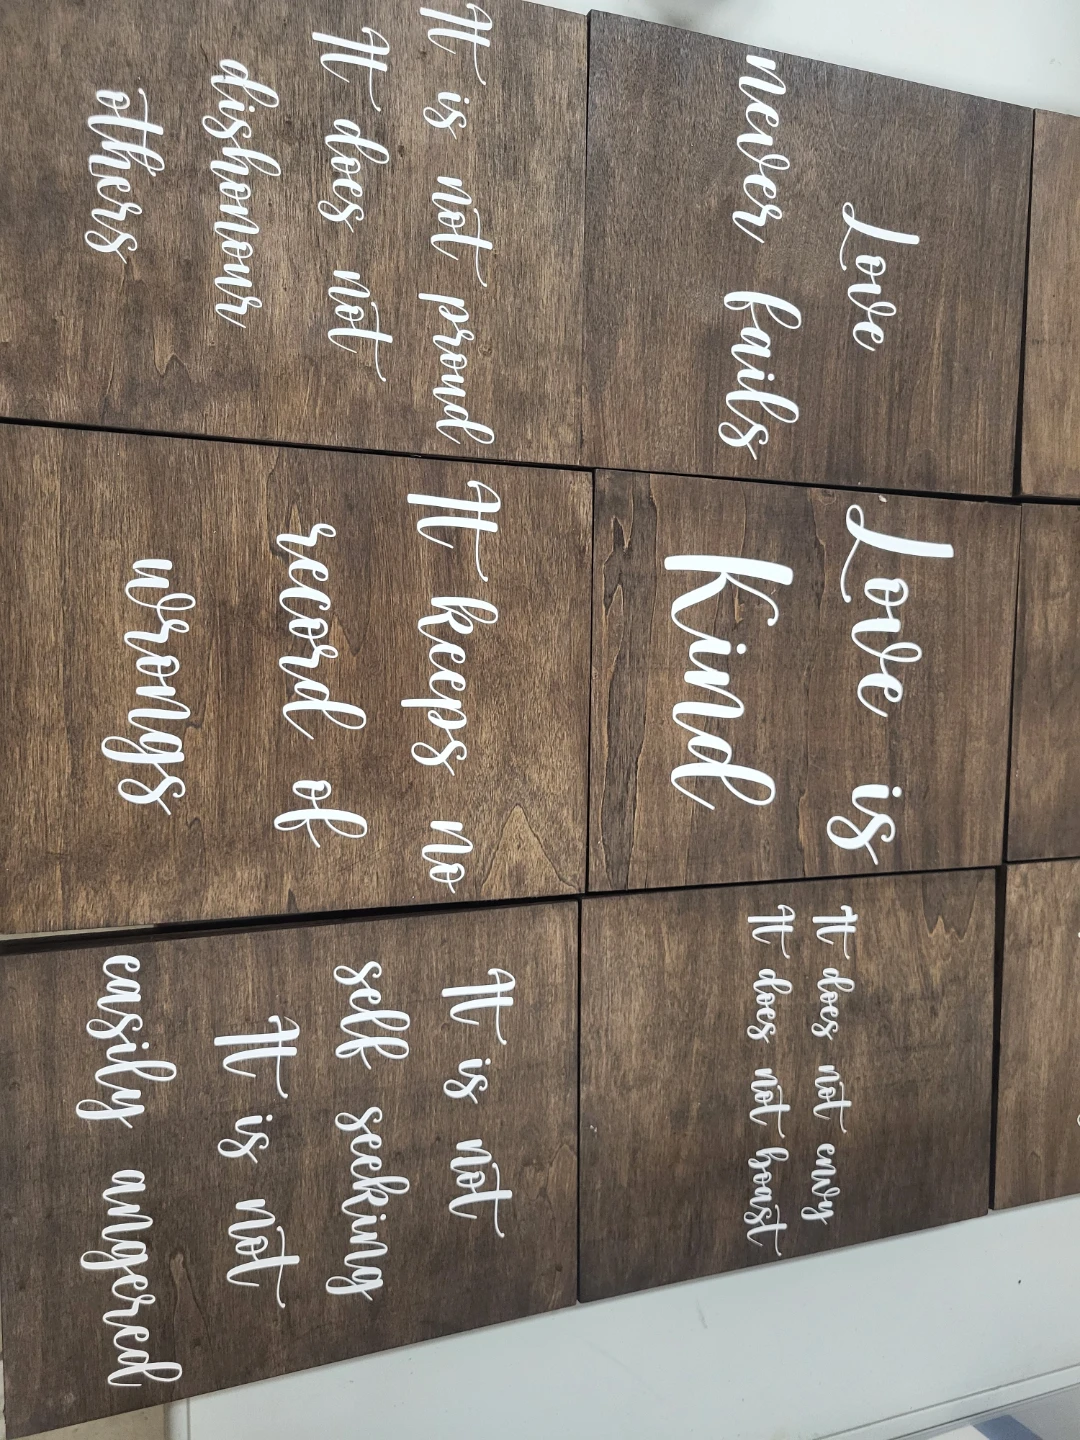 Love
never fails
Love is
Kind
It does not envy
It does not boast
It is not proud
It does not
dishonour
others
It keeps no
record of
wrongs
It is not
self seeking
It is not
easily angered